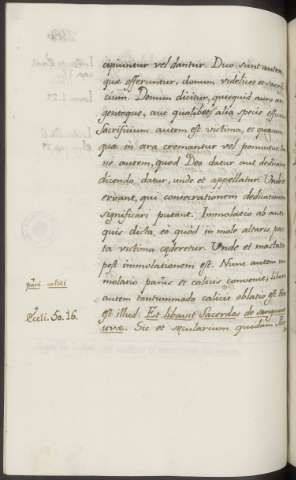 cipiuntur vel dantur. Duo sunt autem,
quæ offeruntur, donum videlicet et sacrifi-
cium. Donum dicitur, quidquid auro ar-
gentoque, aut qualibet alia specie effici
Sacrificium autem est victima, et quæcum
quæ in ara cremantur vel ponuntur.
autem, quod Deo datur aut dedicatur
dicendo datur, unde et appellatur. Unde
errant, qui consecrationem dedicationem
significari putant. Immolatio ab anti-
quis dicta, eo quod in mole altaris posi-
ta victima cæderetur. Unde et mactatio
post immolationem est. Nunc autem im-
molatio panis et calicis convenit; Libatio
autem tantummodo calicis oblatio est
est illud. Et libavit Sacerdos de sanguine
uvæ. Sic et sæcularium quidam
pan. calici
Eccli. 50. 16.